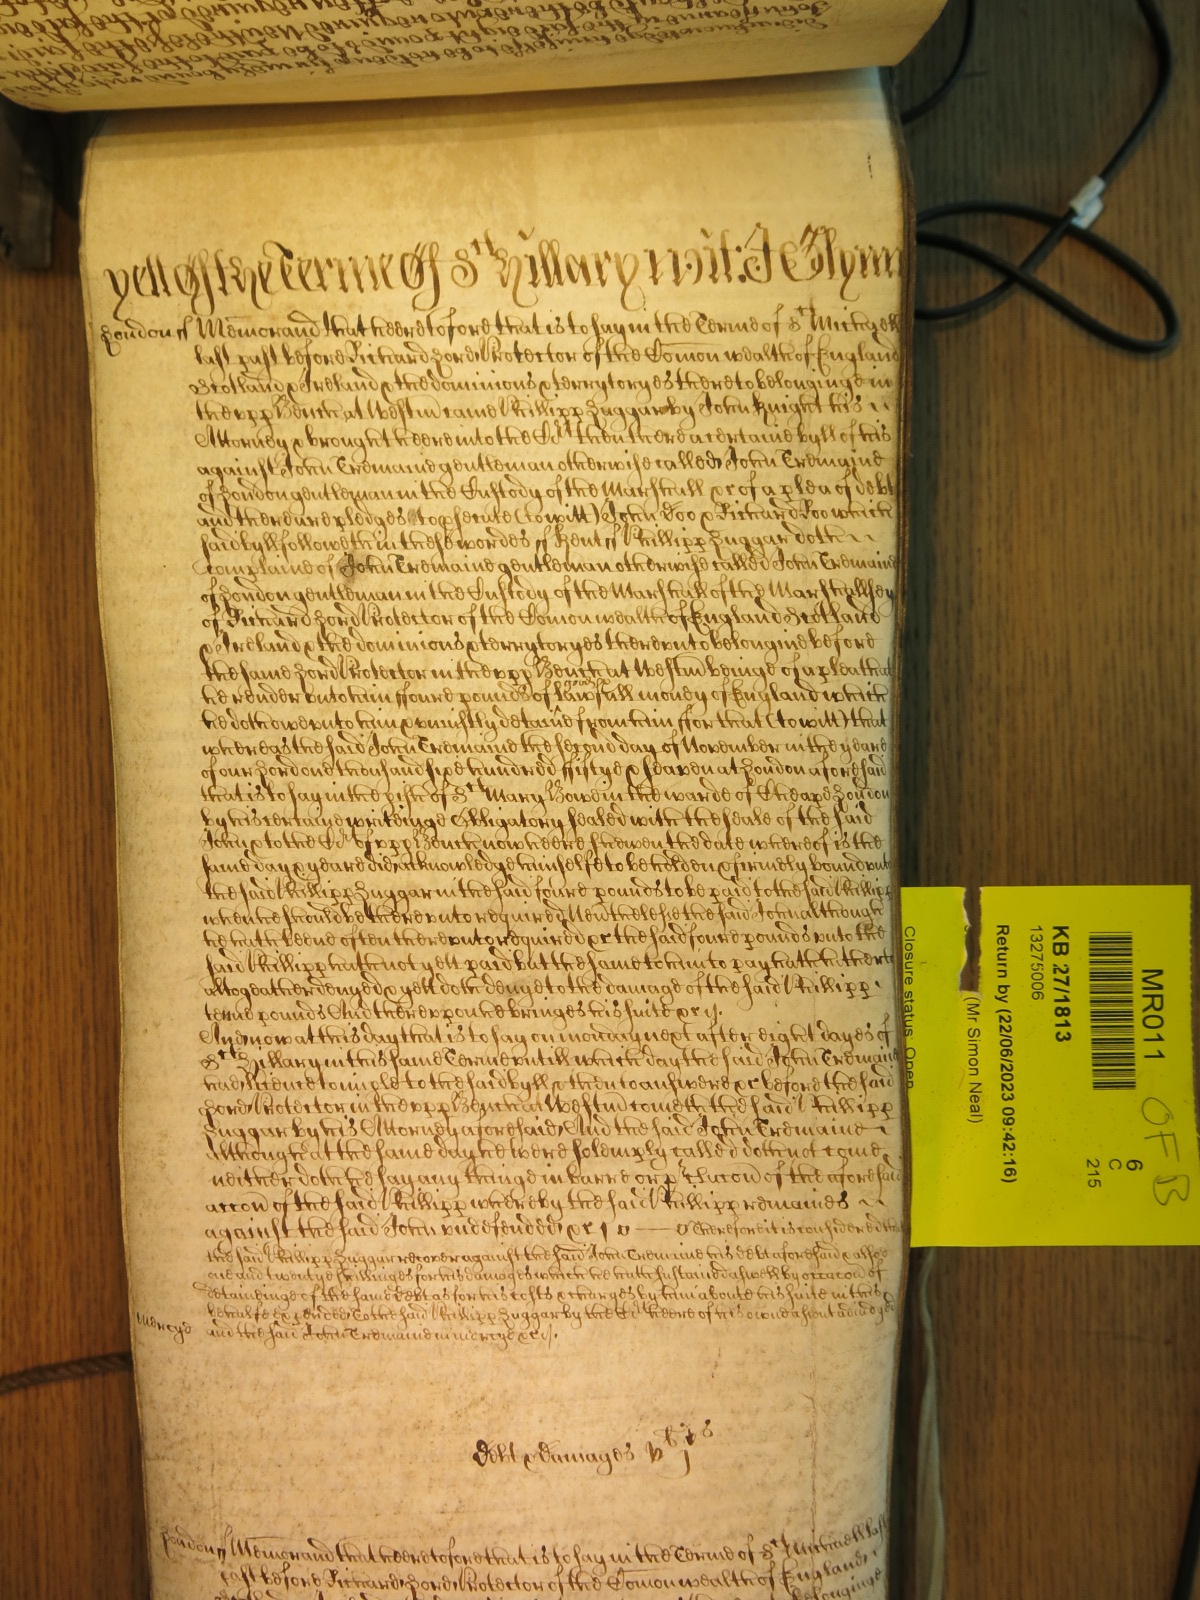 yett Of the Terme Of St Hillary 1658: J Glynn
London ss Memorand that heeretofore that is to say in the Terme of St Michaell
last past before Richard Lord Protector of the Comon wealth of England
Scotland & Ireland & the dominions & terrytoryes thereto belonginge in
the upp Bench at Westm came Phillipp Zuggar by John Knight his
Attorney & brought heere into the Crt then there a certaine byll of his
against John Tremaine gentleman otherwise called John Tremaine
of London gentleman in the Custody of the Marshall &c of a plea of debt
and there are pledges to psecute (to witt) John Doo & Richard Roo which
said byll followeth in these wordes ss Kent ss Phillipp Zuggar doth
complaine of John Tremaine gentleman otherwise called John Tremaine
of London gentleman in the Custody of the Marshall of the Marshallsey
of Richard Lord Protector of the Comon wealth of England Scotland
& Ireland & the dominions & terrytoryes thereunto belonginge before
the same Lord Protector in the upp Bench at Westm beinge of a plea that
he render unto him ffoure pounds of good lawfull money of England which
he doth owe unto him & uniustly detaine from him ffor that (to witt) that
whereas the said John Tremaine the second day of November in the yeare
of our Lord one thousand sixe hundred ffiftye & seaven at London aforesaid
that is to say in the pishe of St Mary Bowe in the warde of Cheape London
by his certaine writeinge Obligatory sealed with the seale of the said
John & to the Crt of upp Bench now heere shewen the date whereof is the
same day & yeare did acknowledge himselfe to be holden & firmely bound unto
the said Phillipp Zuggar in the said foure pounds to be paid to the said Phillipp
when he should be thereunto required Nevthelesse the said John although
he hath beene often thereunto required &c the said foure pounds unto the
said Phillipp hath not yett paid but the same to him to pay hath hitherto
altogeather denyed & yett doth denye to the damage of the said Phillipp
tenne pounds And thereuppon he bringes his suite &c
And now at this day that is to say on monday next after eight dayes of
St Hillary in this same Terme untill which day the said John Tremaine
had licence to imple to the said byll & then to answere &c before the said
Lord Protector in the upp Bench at Westm cometh the said Phillipp
Zuggar by his Attorney aforesaid And the said John Tremaine
Although at the same day he were solemply called doth not come
neither doth he say any thinge in barre or pclucon of the aforesaid
accon of the said Phillipp whereby the said Phillipp remaines
against the said John undefended &c Therefore it is considered that
the said Phillipp Zuggar recover against the said John Tremaine his debt aforesaid & alsoe
one and twentye shillinges for his damages which he hath sustained aswell by occacon of
detaininge of the same debt as for his costs & charges by him about his suite in this
behalfe expended To the said Phillipp Zuggar by the Crt heere of his owne assent adiudged
Mercye and the said John Tremaine in mercye &c
Debt & damages vli js
London ss Memorand that heeretofore that is to say in the Terme of St Michaell last
past before Richard Lord Protector of the Comon wealth of England
belonginge
MR011
6
C
215
OFB
KB 27/1813
13275006
Return by (22/06/2023 09:42:16)
(Mr Simon Neal)
Closure status: Open